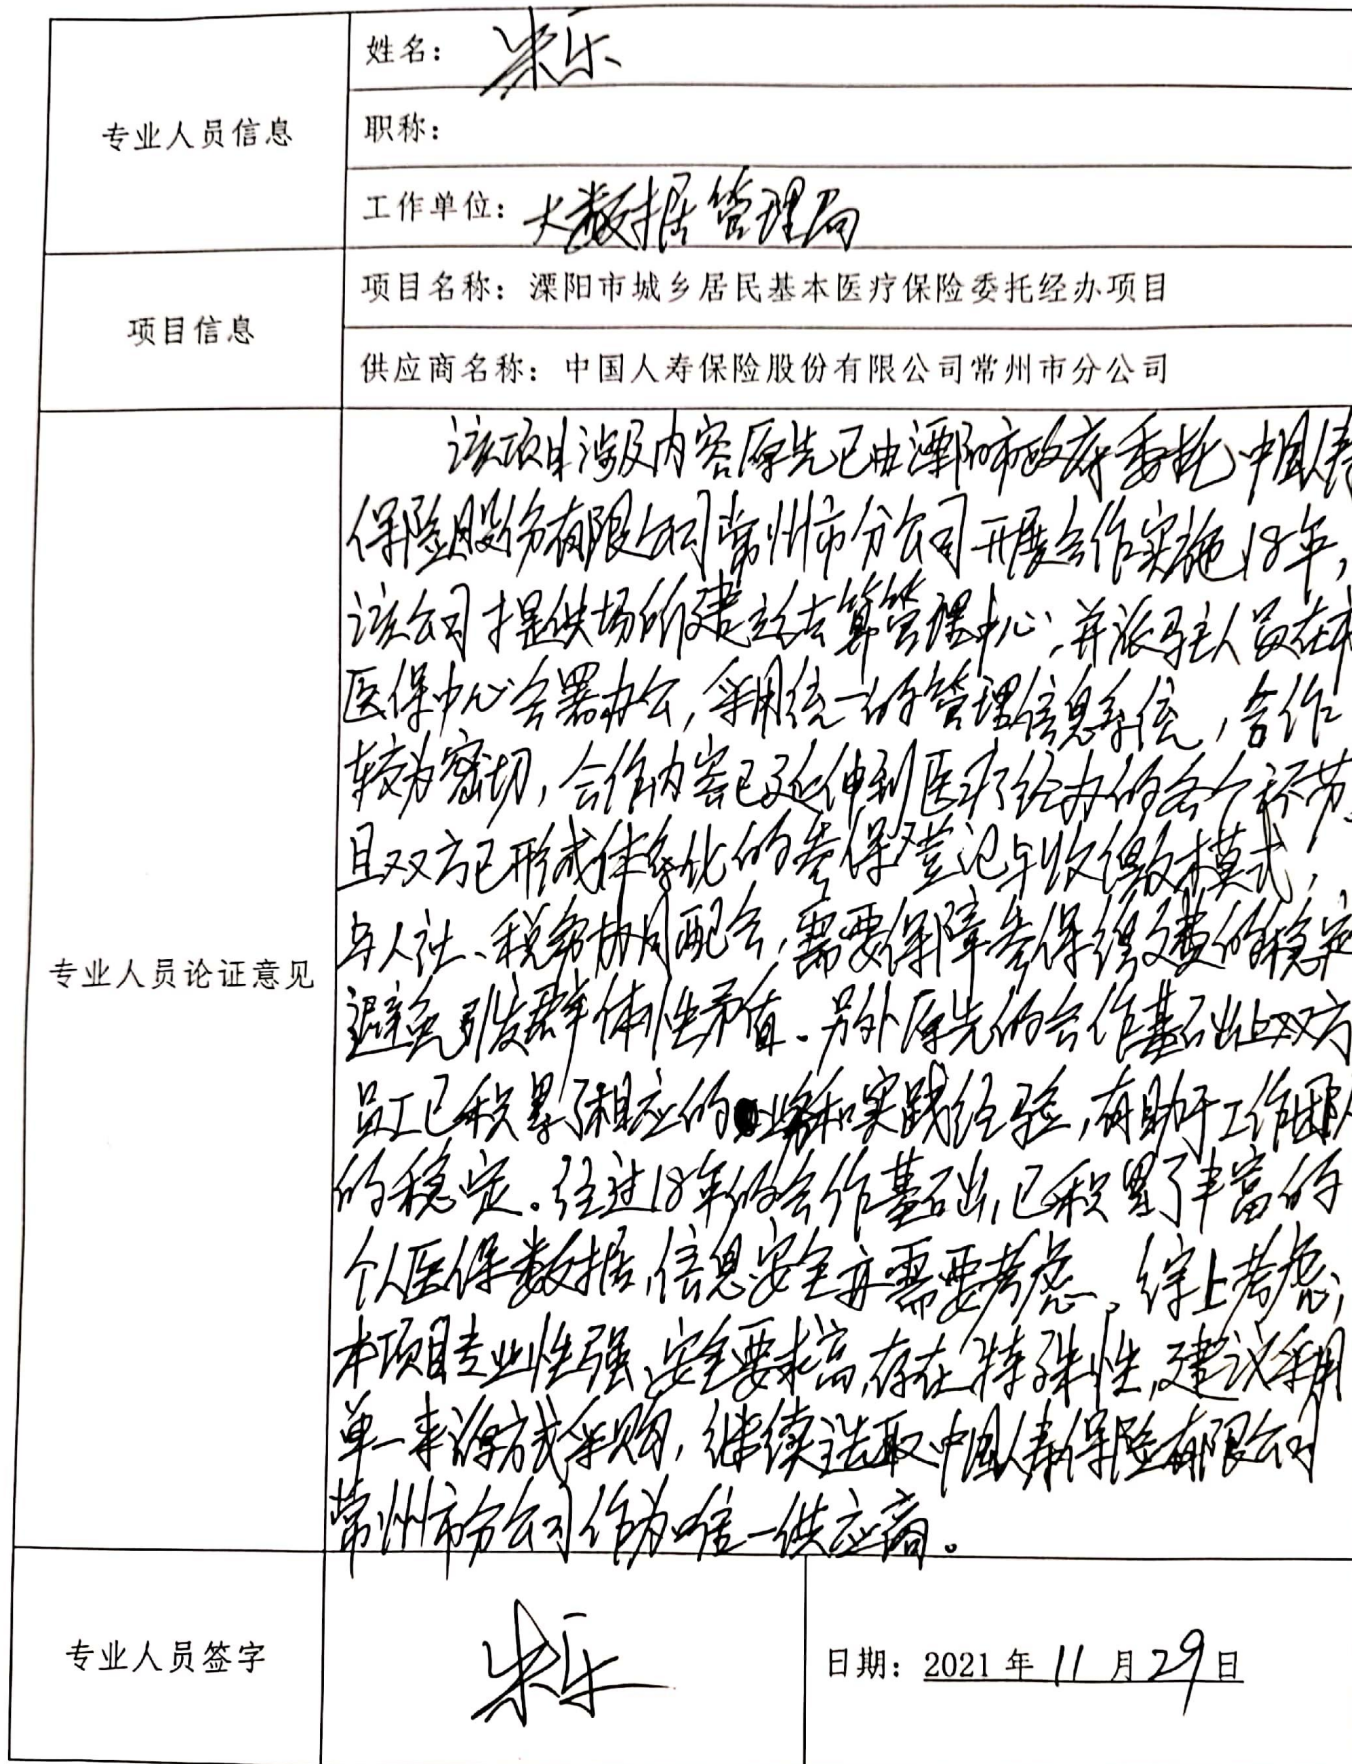 专业人员信息
姓名：朱乐
职称：
工作单位：大数据管理局
项目信息
项目名称：溧阳市城乡居民基本医疗保险委托经办项目
供应商名称：中国人寿保险股份有限公司常州市分公司
专业人员论证意见
该项目涉及内容原先已由溧阳市政府委托中国人寿
保险股份有限公司常州市分公司开展合作实施18年，
该公司提供场所建立结算管理中心，并派驻人员在市
医保中心合署办公，采用统一的管理信息系统，合作
较为密切，合作内容已延伸到医疗经办的各个环节，
且双方已形成体系化的参保登记与收缴模式，
与人社、税务协同配合，需要保障参保缴费的稳定
避免引发群体性矛盾。另外原先的合作基础上双方
员工已积累了相应的业务和实践经验，有助于工作团队
的稳定。经过18年的合作基础，已积累了丰富的
个人医保数据，信息安全亦需要考虑。综上考虑，
本项目专业性强、安全要求高，存在特殊性，建议采用
单一来源方式采购，继续选取中国人寿保险有限公司
常州市分公司作为唯一供应商。
专业人员签字
朱乐
日期：2021年11月29日